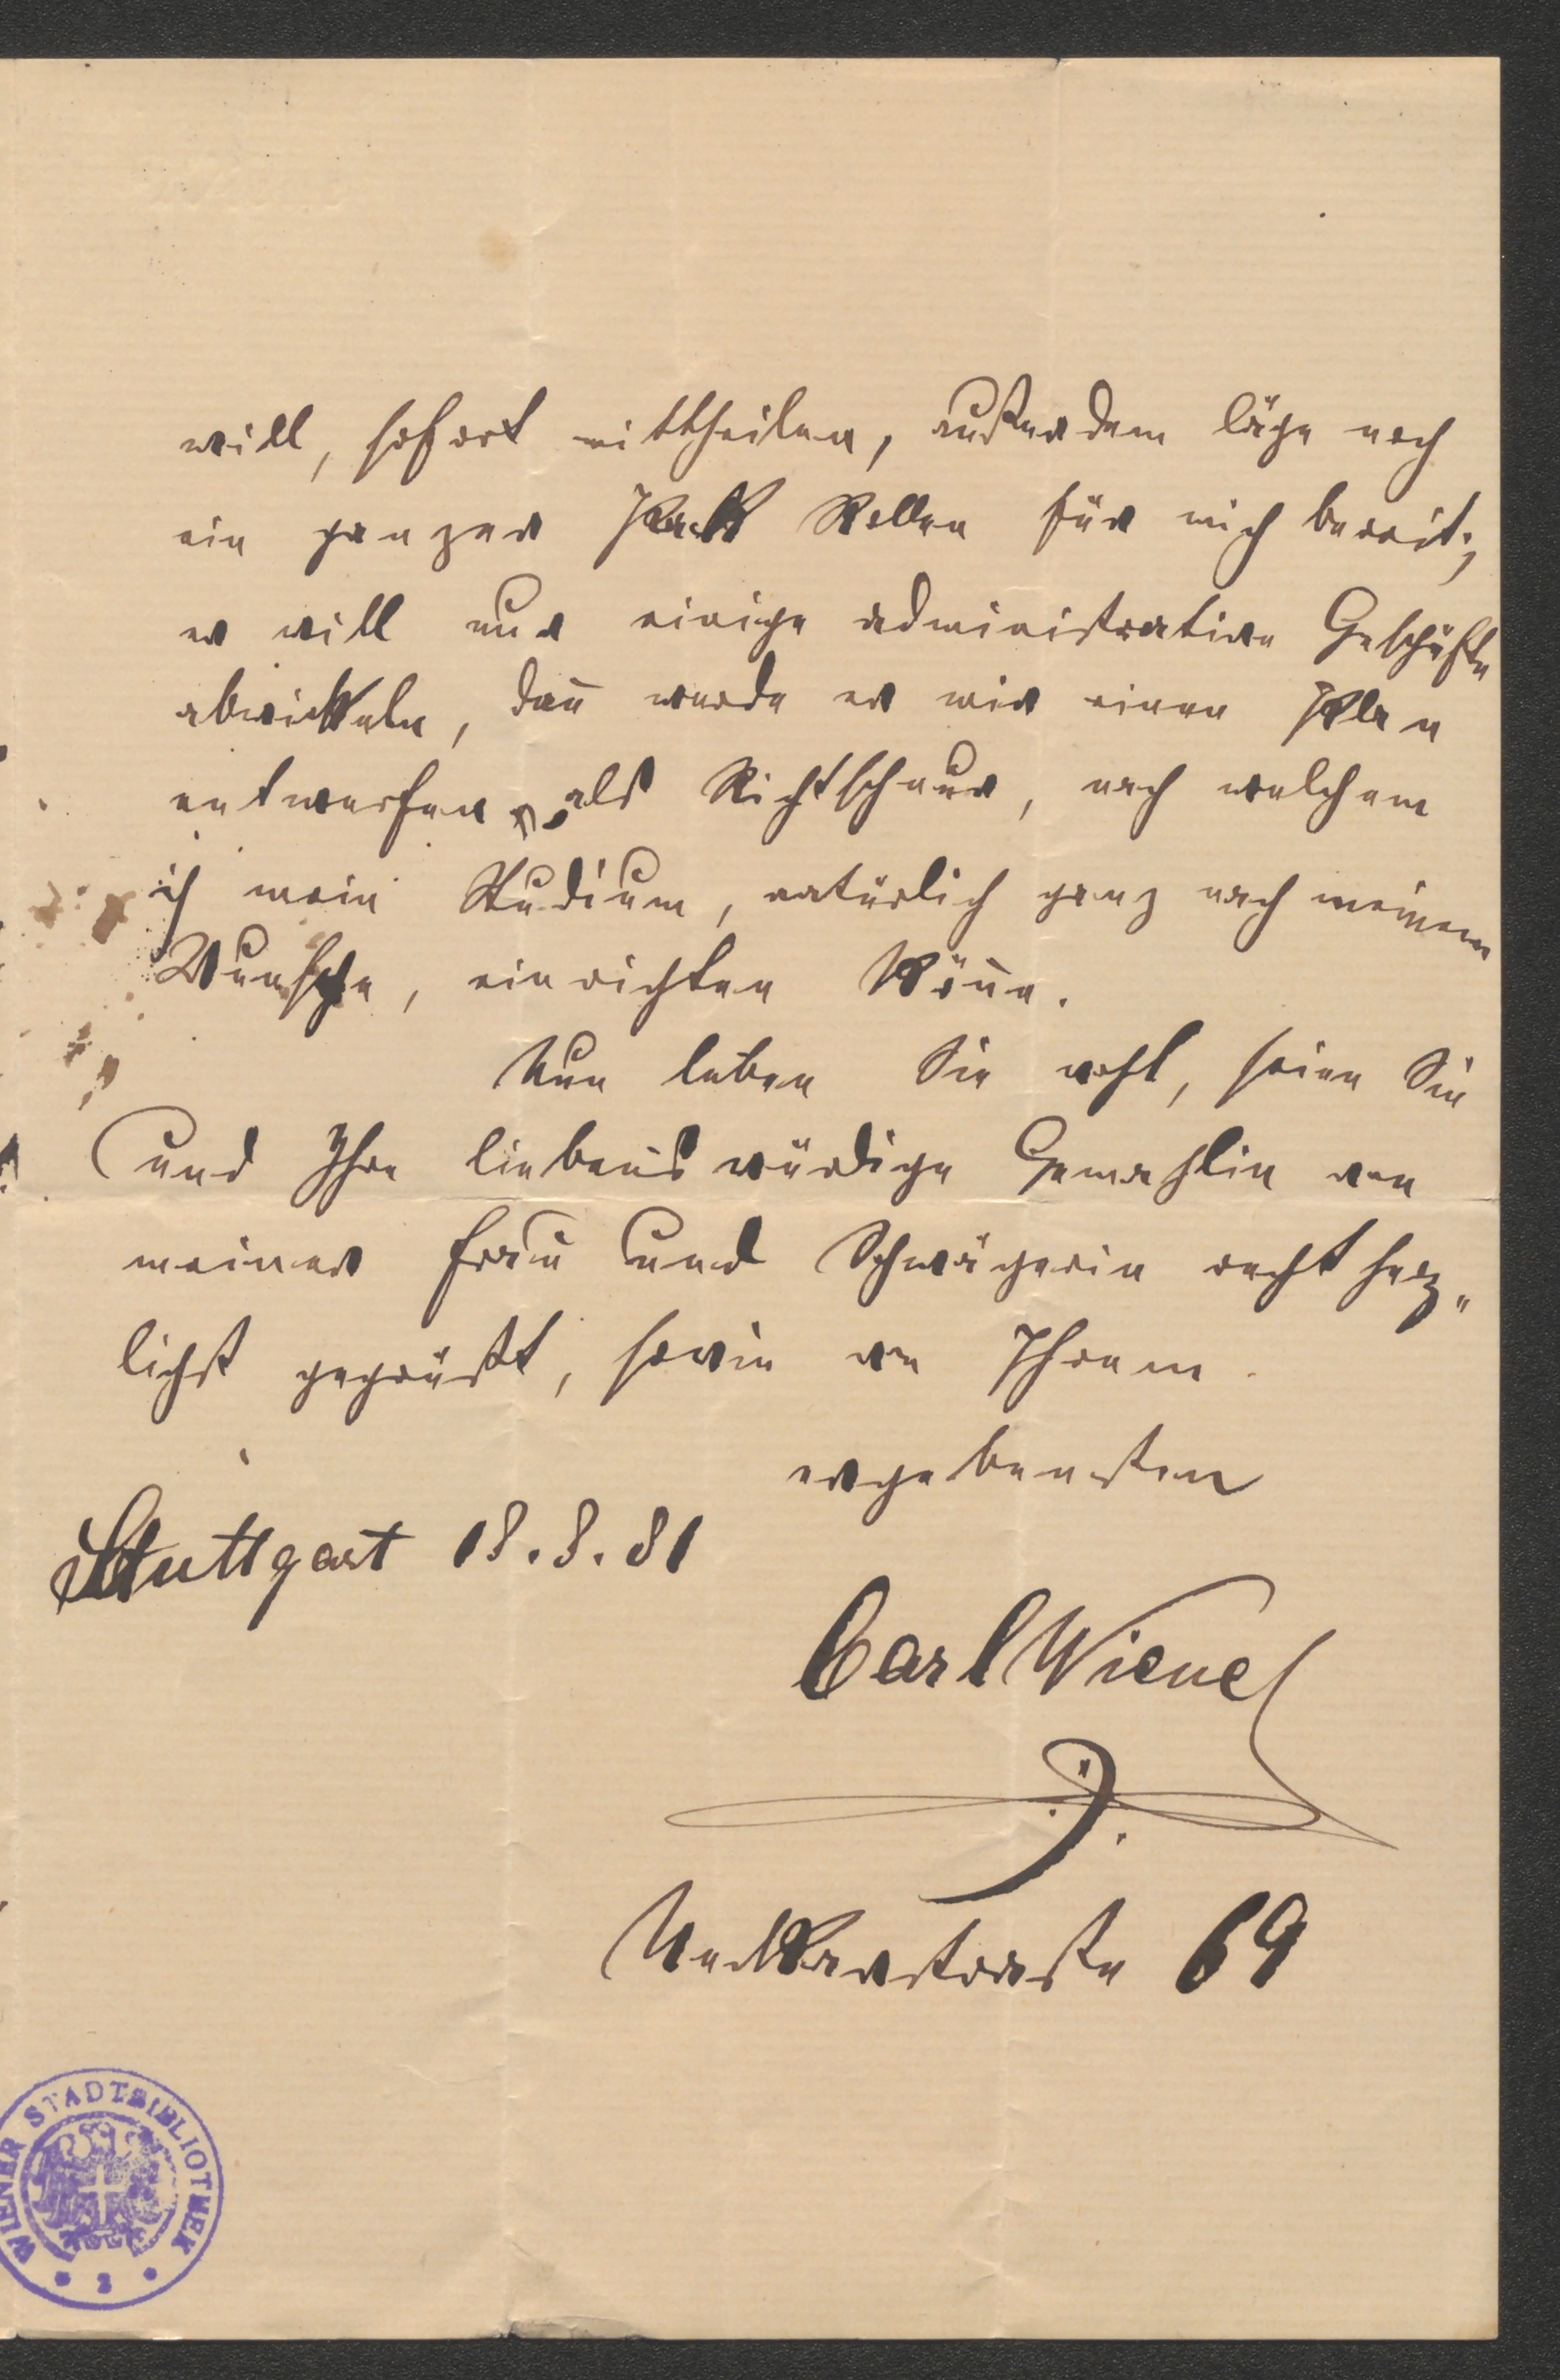 will, sofort mittheilen, außerdem läge noch
ein ganzer Pack Rollen für mich bereit;
er will nur einige administrative Geschäfte
abwickeln, dan̄ werde er mir einen Plan
entwerfen, als Richtschnur, nach welchem
ich mein Studium, natürlich ganz nach meinem
Wunsche, einrichten kön̄e.
Nun leben Sie wohl, seien Sie
und Ihre liebenswürdige Gemahlin von
meiner Frau und Schwägerin recht herz„
lichst gegrüßt, sowie von Ihrem
ergebensten
Stuttgart 18.8.81
Carl Wiene
Neckarstraße 69
WIENER STADTBIBLIOTHEK